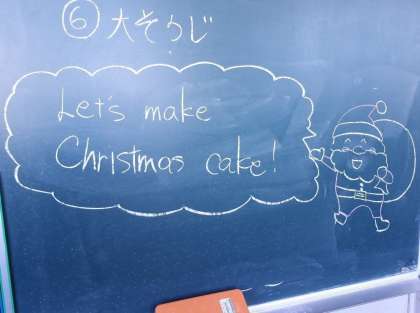 ⑥ 大そうじ
Let's make
Christmas cake!